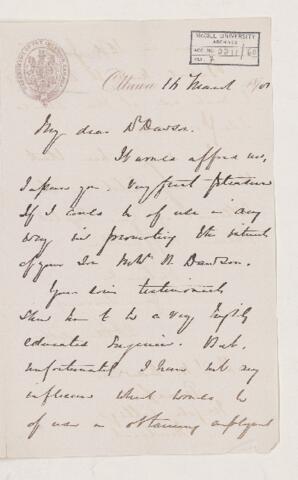 McGILL UNIVERSITY
ARCHIVES
ACC. NO. 2211/60
REF. 7
Ottawa 14 March
My dear Dr Dawson.
It would afford me,
I assure you. Very great pleasure
If I could be of use in any
way in promoting the interests
of your Son Mr Wm B. Dawson.
Your Son's testimonials
shew him to be a very highly
educated Engineer. But,
unfortunately I have not any
influence which would be
of use in obtaining employment